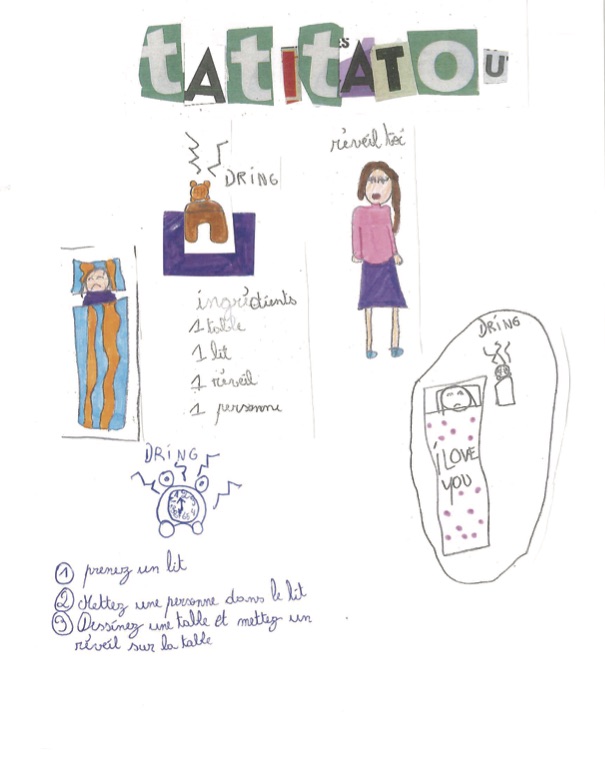 tATitATOU
réveil toi
DRING
ingrédients
1 table
1 lit
1 réveil
1 personne
DRING
I LOVE
YOU
DRING
1 prenez un lit
2 Mettez une personne dans le lit
3 Dessinez une table et mettez un
réveil sur la table